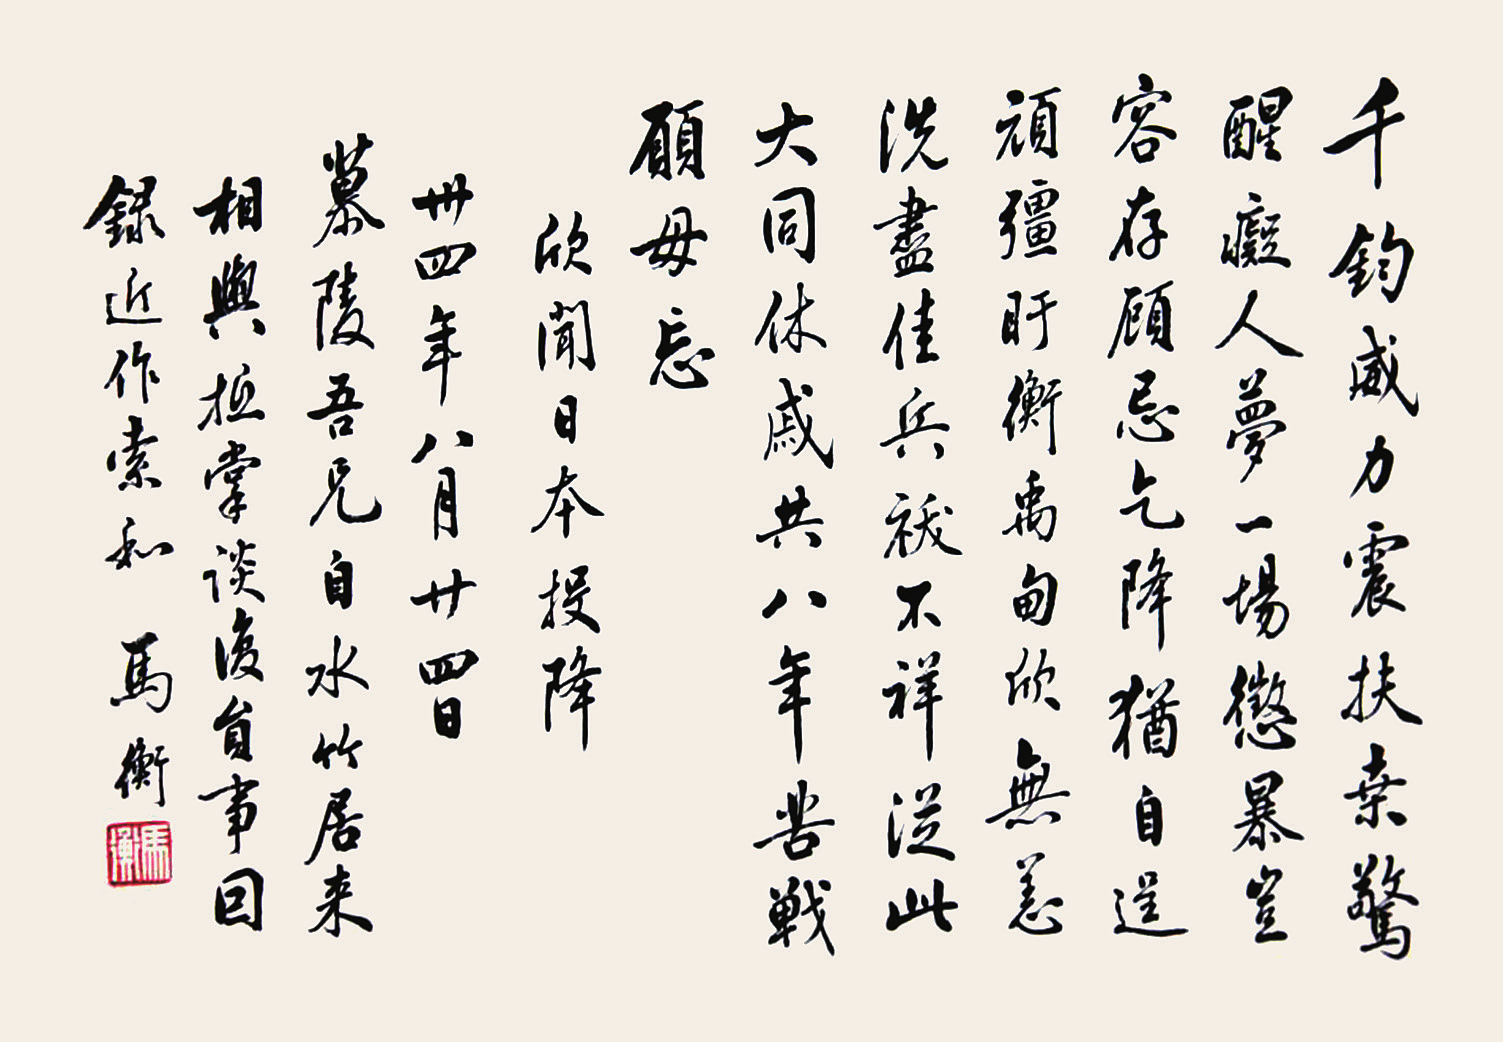 千鈞威力震扶桒驚
醒癡人夢一場懲暴豈
容存顧忌乞降猶自逞
頑彊盱衡禹甸欣無恙
洗盡佳兵祓不祥從此
大同休戚共八年苦戰
願毋忘
欣聞日本投降
卅四年八月廿四日
慕陵吾兄自水竹居来
相與抵掌談復員事回
録近作索和 馬衡
馬衡